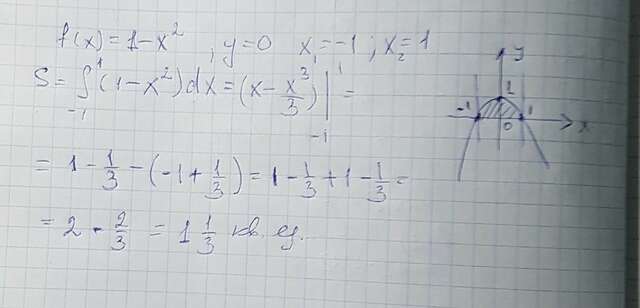 f(x) = 1 - x², y = 0 x₁ = -1; x₂ = 1
S = ∫₋₁¹ (1 - x²) dx = (x - x³/3) |₋₁¹ =
= 1 - 1/3 - (-1 + 1/3) = 1 - 1/3 + 1 - 1/3 =
= 2 - 2/3 = 1 1/3 кв. ед.
y
1
-1 1
0 x